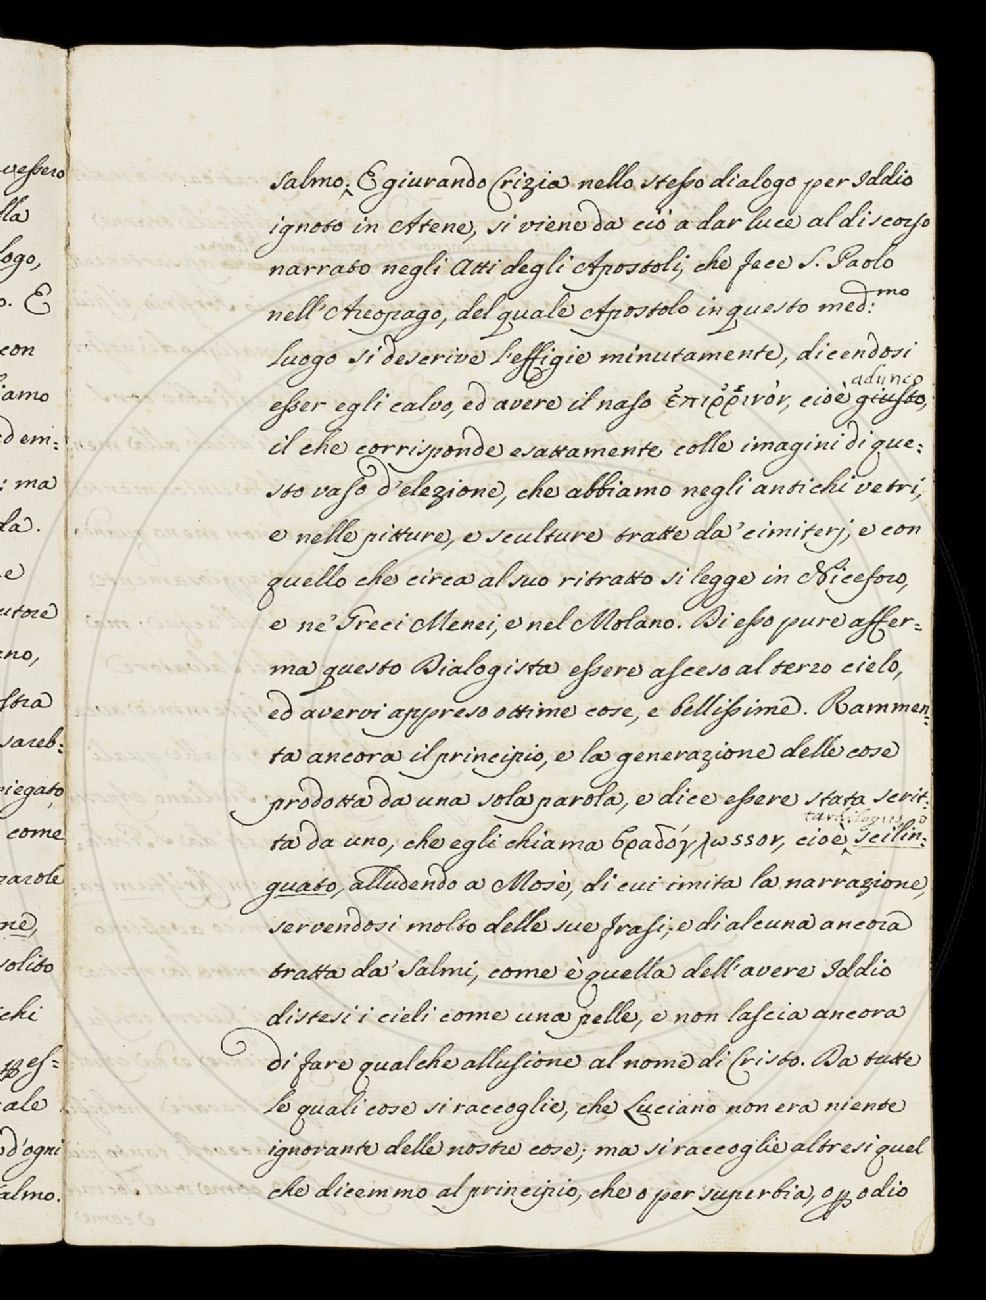 salmo. E giurando Crizia nello stesso dialogo per Iddio
ignoto in Atene, si viene da ciò a dar luce al discorso
narrato negli Atti degli Apostoli, che fece S. Paolo
nell'Areopago, del quale Apostolo in questo med:mo
luogo si descrive l'effigie minutamente, dicendosi
adunco
esser egli calvo, ed avere il naso ἐπιῤῥινόν, cioè giusto,
il che corrisponde esattamente colle imagini di que:
sto vaso d'elezione, che abbiamo negli antichi vetri,
e nelle pitture, e sculture tratte da' cimiterj, e con
quello che circa al suo ritratto si legge in Niceforo,
e ne' Greci Menei, e nel Molano. Di esso pure affer:
ma questo Dialogista essere asceso al terzo cielo,
ed avervi appreso ottime cose, e bellissime. Rammen:
ta ancora il principio, e la generazione delle cose
prodotta da una sola parola, e dice essere stata scrit:
tardiloquo, o
ta da uno, che egli chiama βραδόγλωσσον, cioè scilin:
guato, alludendo a Mosè, di cui imita la narrazione,
servendosi molto delle sue frasi, e di alcuna ancora
tratta da' Salmi, come è quella dell'avere Iddio
distesi i cieli come una pelle, e non lascia ancora
di fare qualche allusione al nome di Cristo. Da tutte
le quali cose si raccoglie, che Luciano non era niente
ignorante delle nostre cose; ma si raccoglie altresì quel
che dicemmo al principio, che o per superbia, o p odio
vessero
lla
logo,
o. E
con
iamo
ed em:
: ma
da.
e
utore
no,
stra
sareb:
piegato,
come
parole
ne,
solito
chi
es:
ale
d'ogni
salmo.